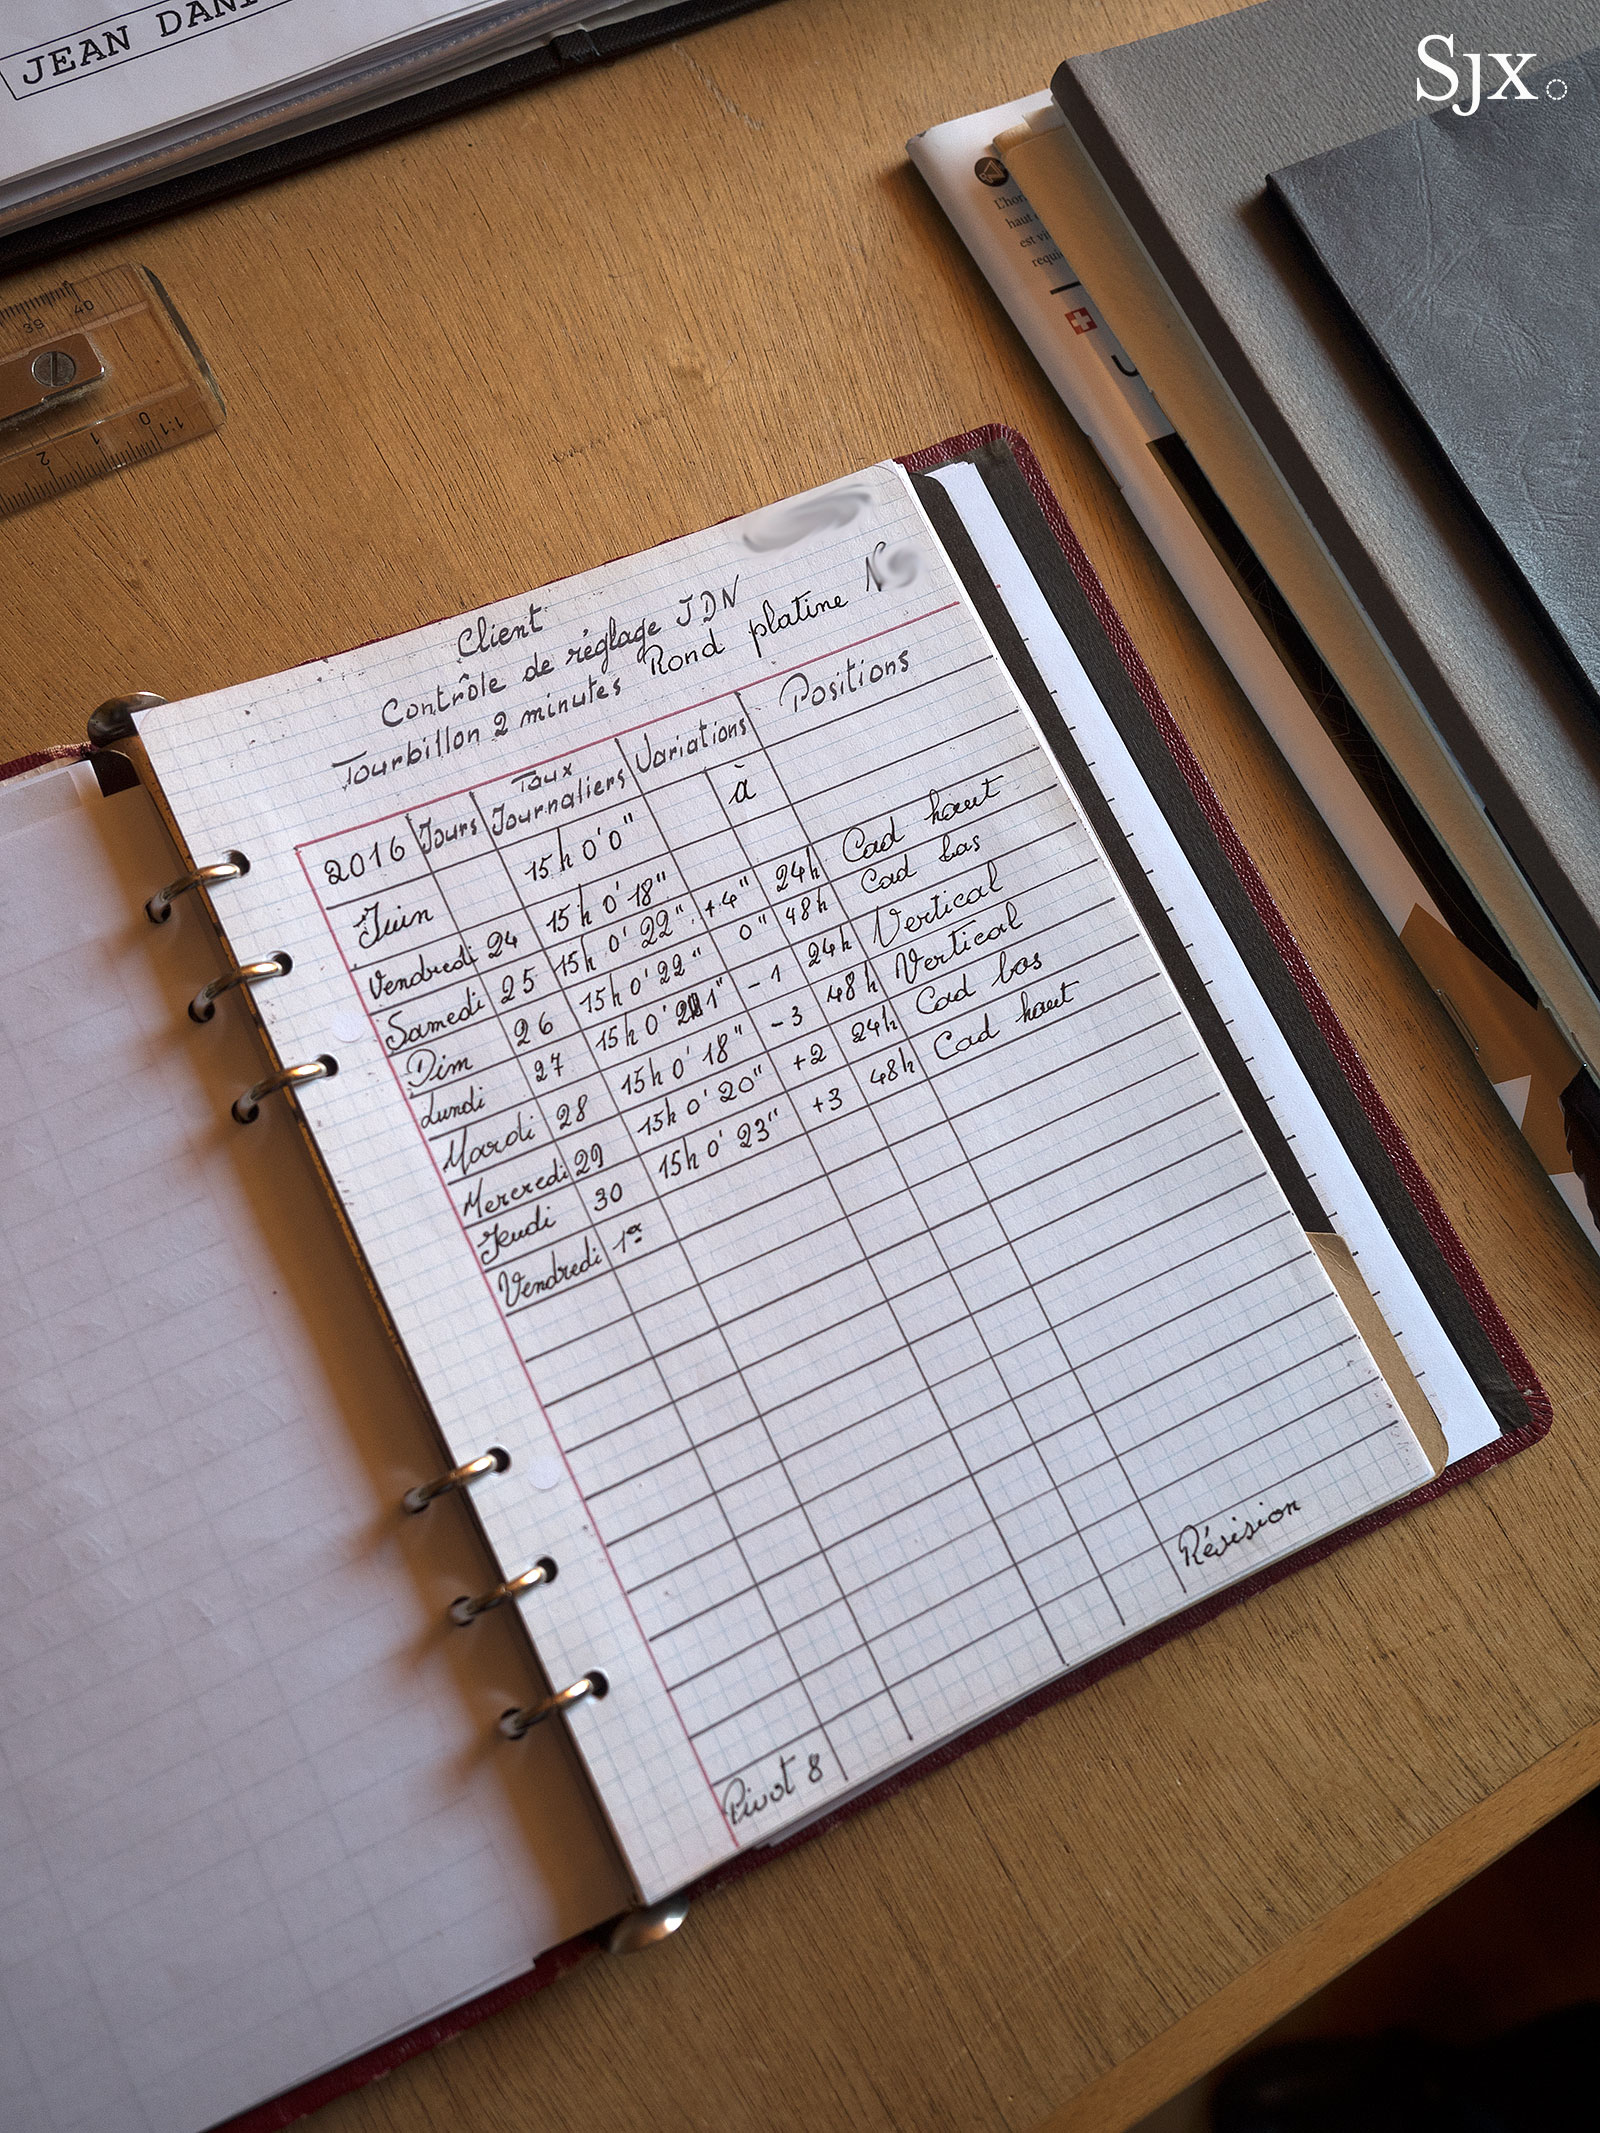 JEAN DANI
Sjx
39 40
2 1 0 1:1
L'hor
haut
est vi
requi
Client
Contrôle de réglage JDN
Tourbillon 2 minutes Rond platine N
2016 Jours Taux Journaliers Variations Positions
Juin 15h 0' 0" à
Vendredi 24 15h 0' 18"
Samedi 25 15h 0' 22" +4" 24h Cad haut
Dim 26 15h 0' 22" 0" 48h Cad bas
Lundi 27 15h 0' 21" -1 24h Vertical
Mardi 28 15h 0' 18" -3 48h Vertical
Mercredi 29 15h 0' 20" +2 24h Cad bas
Jeudi 30 15h 0' 23" +3 48h Cad haut
Vendredi 1er
Révision
Pivot 8